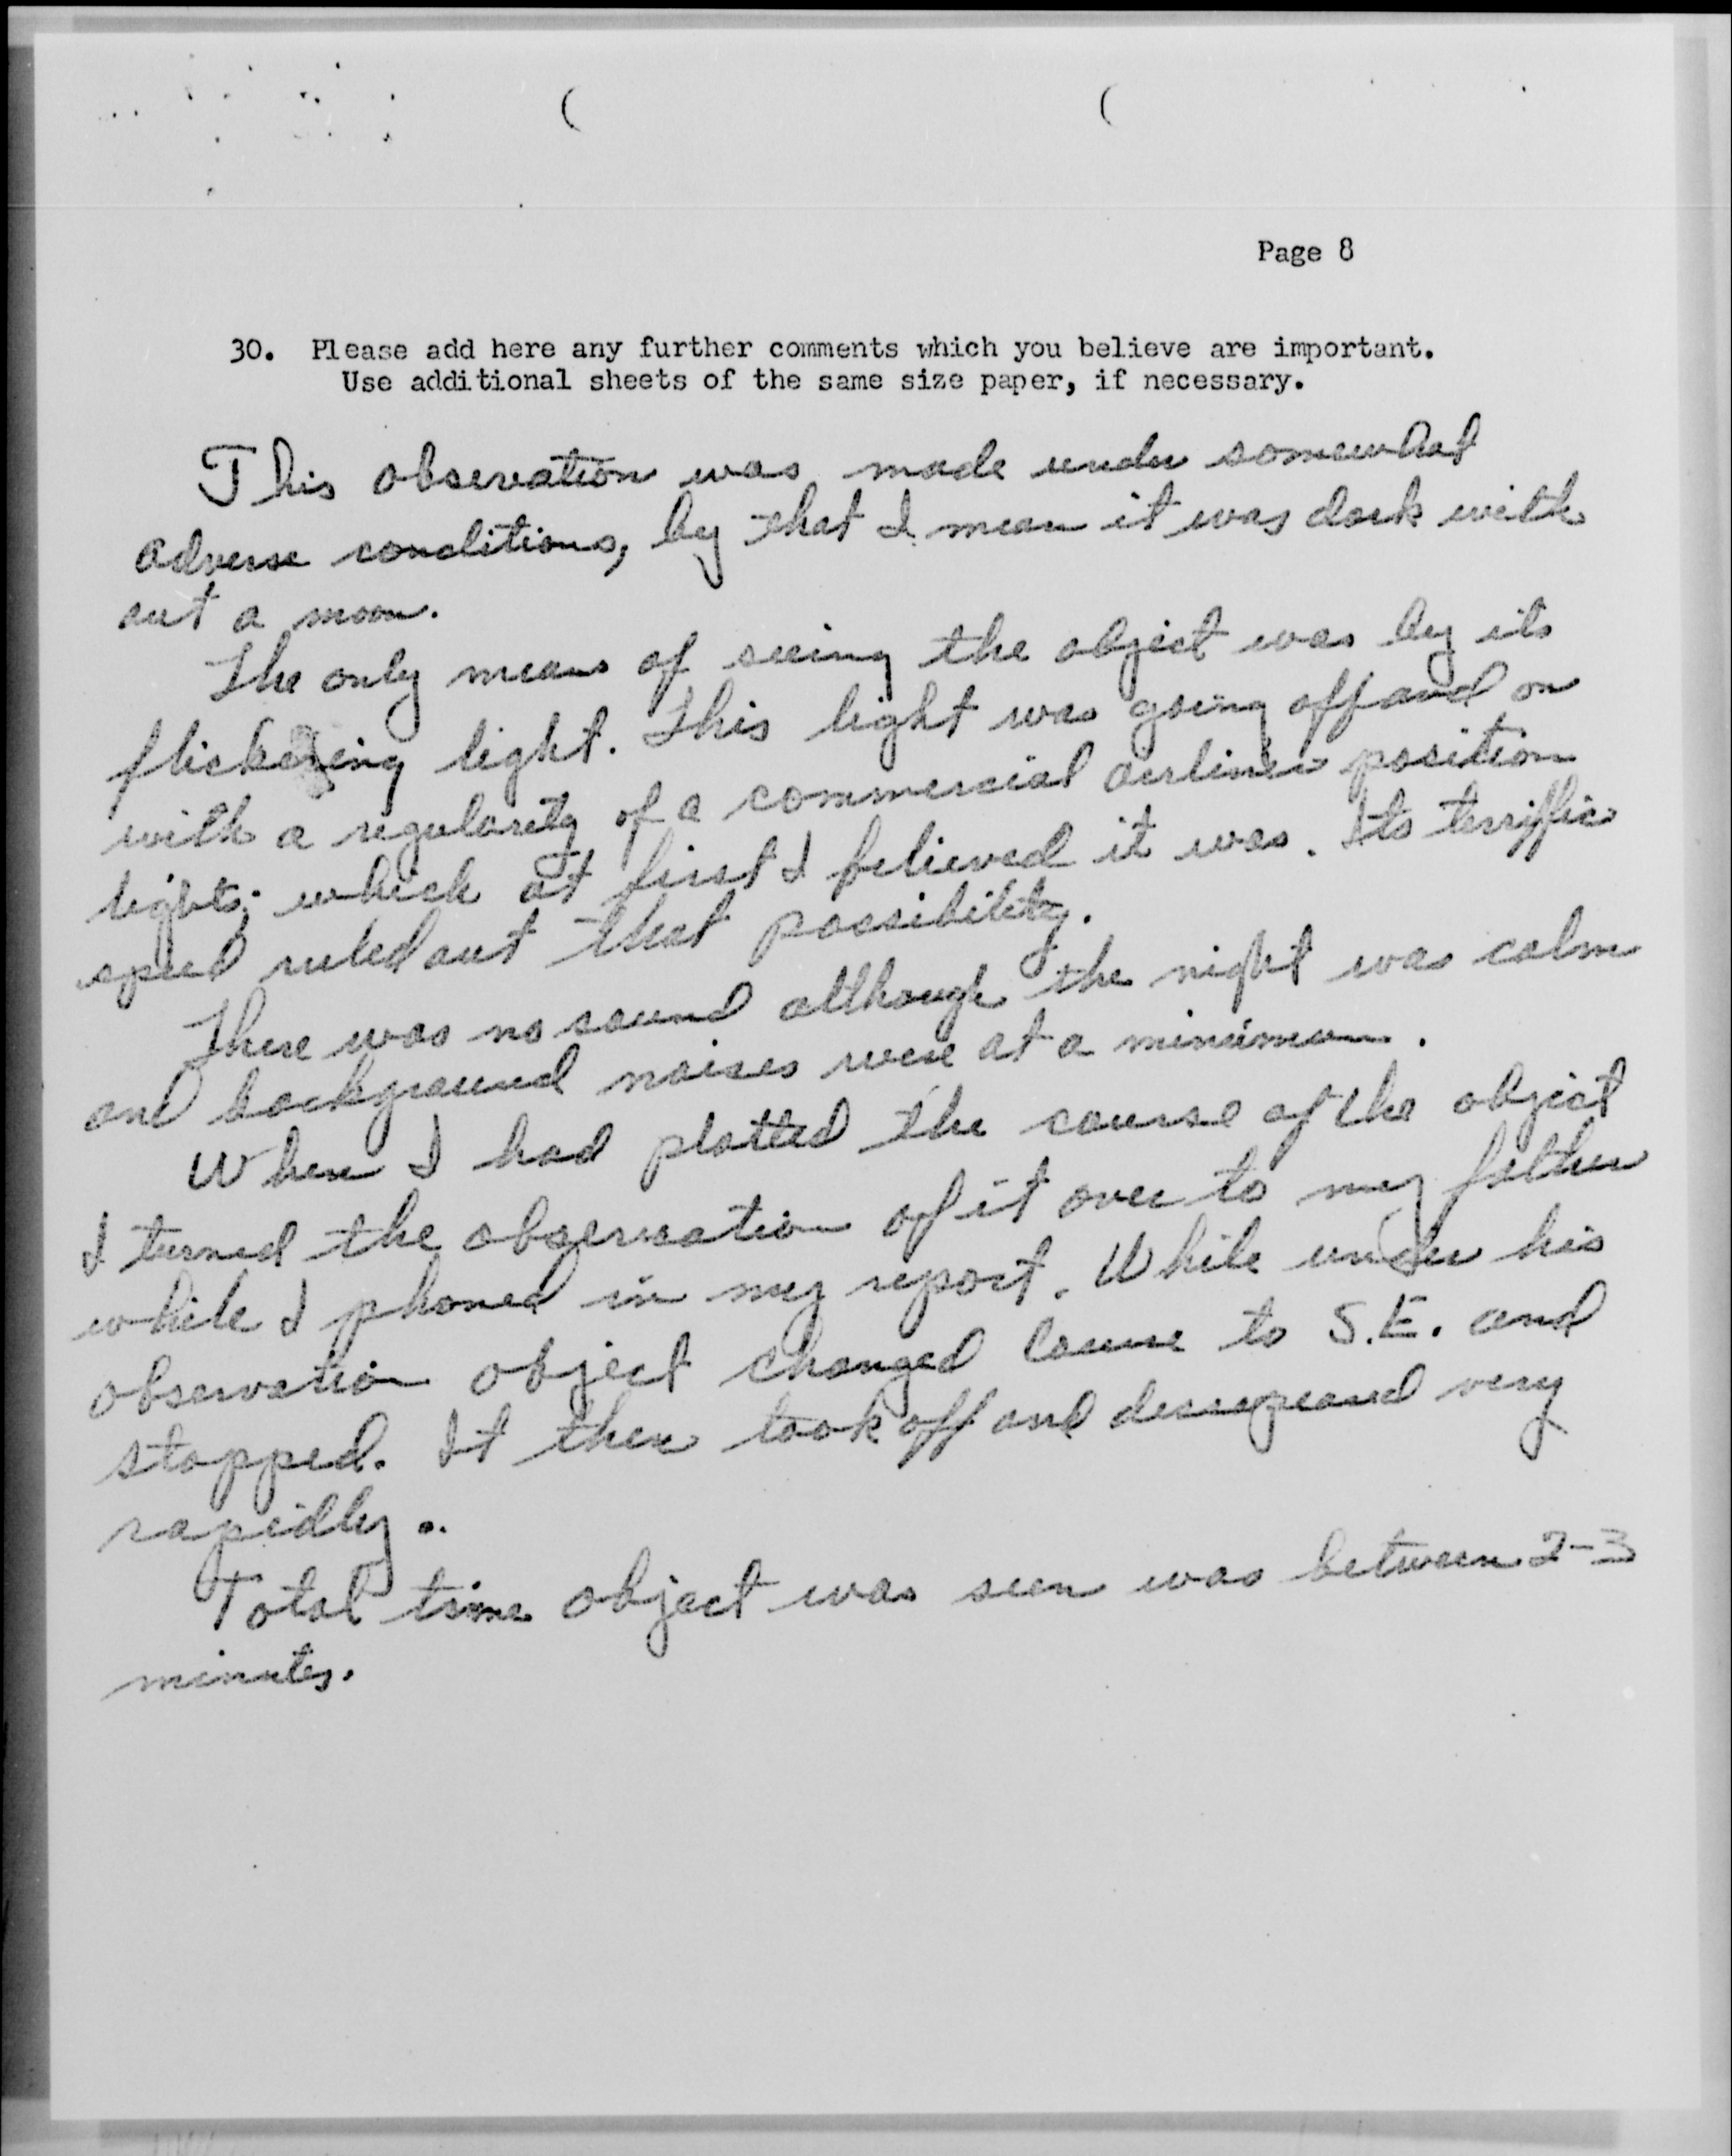 Page 8
30. Please add here any further comments which you believe are important.
Use additional sheets of the same size paper, if necessary.
This observation was made under somewhat
adverse conditions, by that I mean it was dark with
out a moon.
The only means of seeing the object was by its
flickering light. This light was going off and on
with a regularity of a commercial airliner position
lights; which at first I believed it was. Its terriffic
speed ruled out that possibility.
There was no sound although the night was calm
and background noises were at a minimum.
When I had plotted the course of the object
I turned the observation of it over to my father
while I phoned in my report. While under his
observation object changed course to S.E. and
stopped. It then took off and dissapeared very
rapidly.
Total time object was seen was between 2-3
minutes.